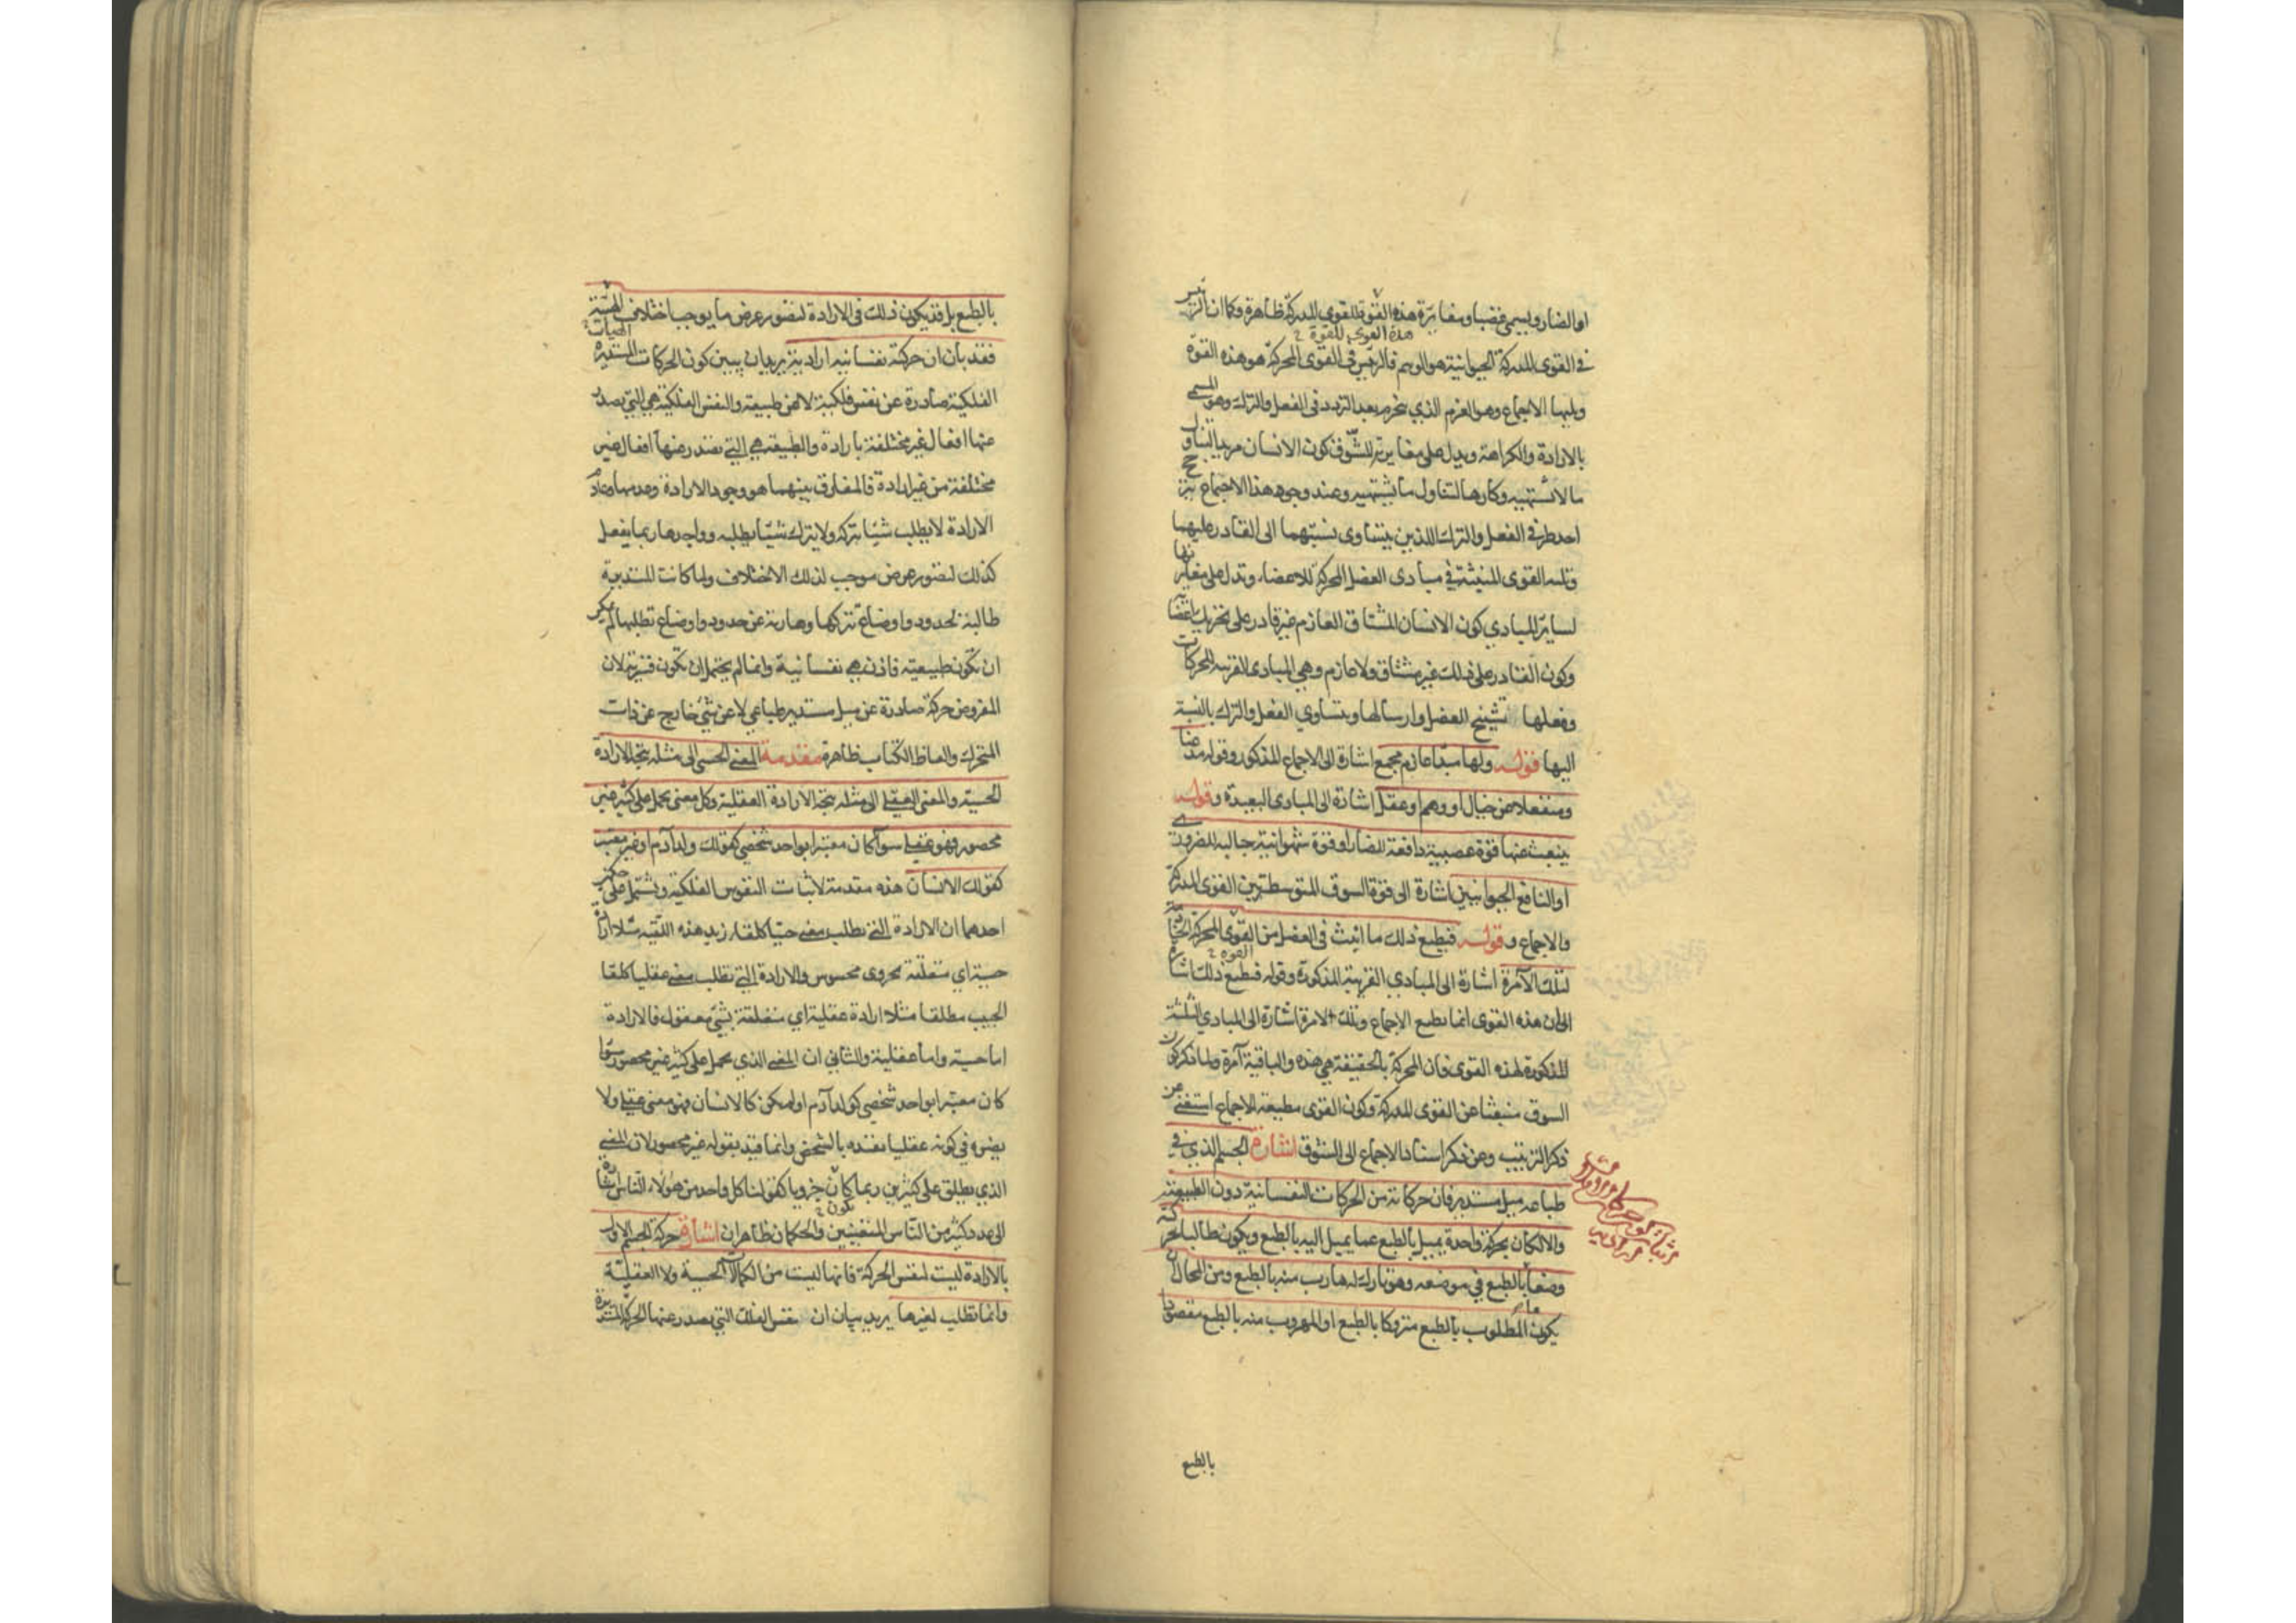 او الضار ويسمى غضبا ومغايرة هذه القوة للقوى المدركة ظاهرة وكما ان الرئيس
هذه القوى للقوة
في القوى المدركة الحيوانية هو الوهم فالرئيس في القوى المحركة هو هذه القوة
ويليها الاجماع وهو العزم الذي ينجزم بعد التردد في الفعل والترك وهو المسمى
بالارادة والكراهة ويدل على مغايرته للشوق كون الانسان مريدا لتناول
ما لا يشتهيه وكارها لتناول ما يشتهيه وعند وجود هذا الاجماع يترجح
احد طرفي الفعل والترك اللذين يتساوى نسبتهما الى القادر عليهما
وتليه القوى المنبثة في مبادى العضل المحركة للاعضاء وتدل على مغايرتها
لساير المبادي كون الانسان المشتاق العازم غير قادر على تحريك اعضائه
وكون القادر على ذلك غير مشتاق ولا عازم وهي المبادى القريبة للحركات
وفعلها تشنيج العضل وارسالها ويتساوى الفعل والترك بالنسبة
اليها قوله ولها مبدأ عازم مجمع اشارة الى الاجماع المذكور وقوله مذعنا
ومنفعلا عن خيال او وهم او عقل اشارة الى المبادى البعيدة وقوله
ينبعث عنها قوة غضبية دافعة للضار او قوة شهوانية جالبة للضروري
او النافع الحيوانيين اشارة الى قوة الشوق المتوسطة بين القوى المدركة
والاجماع وقوله فيطيع ذلك ما انبث في العضل من القوى المحركة الخادمة
لتلك الآمرة اشارة الى المبادي القريبة المذكورة وقوله فيطيع ذلك اشارة
الى ان هذه القوى انما تطيع الاجماع وتلك الامرة اشارة الى المبادي الثلثة
المذكورة لهذه القوى فان المحركة بالحقيقة هي هذه والباقية آمرة ولما ذكر كون
الشوق منبعثا عن القوى المدركة وكون القوى مطيعة للاجماع استغنى عن
ذكر الترتيب وعن ذكر اسناد الاجماع الى الشوق اشارة الجسم الذي في
طباعه ميل مستدير فان حركاته من الحركات النفسانية دون الطبيعية
والا لكان بحركة واحدة يميل بالطبع عما يميل اليه بالطبع ويكون طالبا بحركته
وضعا بالطبع في موضعه وهو تارك له هارب منه بالطبع ومن المحال ان
يكون المطلوب بالطبع متروكا بالطبع او المهروب منه بالطبع مقصودا
بالطبع
بالطبع بل قد يكون ذلك في الارادة لتصور غرض ما يوجب اختلاف الهيئة
فقد بان ان حركته نفسانية ارادية يريد ان يبين كون الحركات المستديرة
الفلكية صادرة عن نفس فلكية لا عن طبيعة والنفس الفلكية هي التي يصدر
عنها افعال غير مختلفة بارادة والطبيعة هي التي تصدر عنها افعال غير
مختلفة من غير ارادة فالمفارق بينهما هو وجود الارادة وعدمها وعادم
الارادة لا يطلب شيئا يتركه ولا يترك شيئا يطلبه وواجدها ربما يفعل
كذلك لتصور غرض موجب لذلك الاختلاف ولما كانت المستديرة
طالبة لحدود واوضاع تتركها وهاربة عن حدود واوضاع تطلبها لم يمكن
ان تكون طبيعية فاذن هي نفسانية وانما لم يحتمل ان تكون قسرية لان
المفروض حركة صادرة عن ميل مستدير طباعي لا عن شئ خارج عن ذات
المتحرك والفاظ الكتاب ظاهرة مقدمة المعنى الحسي الى مثله يتجه الارادة
الحسية والمعنى العقلي الى مثله يتجه الارادة العقلية وكل معنى يحمل على كثير غير
محصور فهو عقلي سوآ كان معتبرا بواحد شخصي كقولك ولد آدم او غير معتبر
كقولك الانسان هذه مقدمة لاثبات النفوس الفلكية ويشتمل على حكمين
احدهما ان الارادة التي تطلب معنى حسيا كلقاء زيد هذه اللقية مثلا ارادة
حسية اي متعلقة بجزوى محسوس والارادة التي تطلب معنى عقليا كلقاء
الحبيب مطلقا مثلا ارادة عقلية اي متعلقة بشئ معقول فالارادة
اما حسية واما عقلية والثاني ان المعنى الذي يحمل على كثير غير محصور سوآ
كان معتبرا بواحد شخصي كولد آدم او لم يكن كالانسان فهو معنى عقلي ولا
يضره في كونه عقليا تقيده بالشخص وانما قيد بقوله غير محصور لان المعنى
الذي يطلق على كثيرين ربما كان جزويا كقولنا كل واحد من هؤلاء الناس اشارة
الى عدد كثير من الناس المتعينين والحكمان ظاهران اشارة حركة الجسم الاول
بالارادة ليست لنفس الحركة فانها ليست من الكمالات الحسية ولا العقلية
وانما تطلب لغيرها يريد بيان ان نفس الفلك التي يصدر عنها الحركة المستديرة